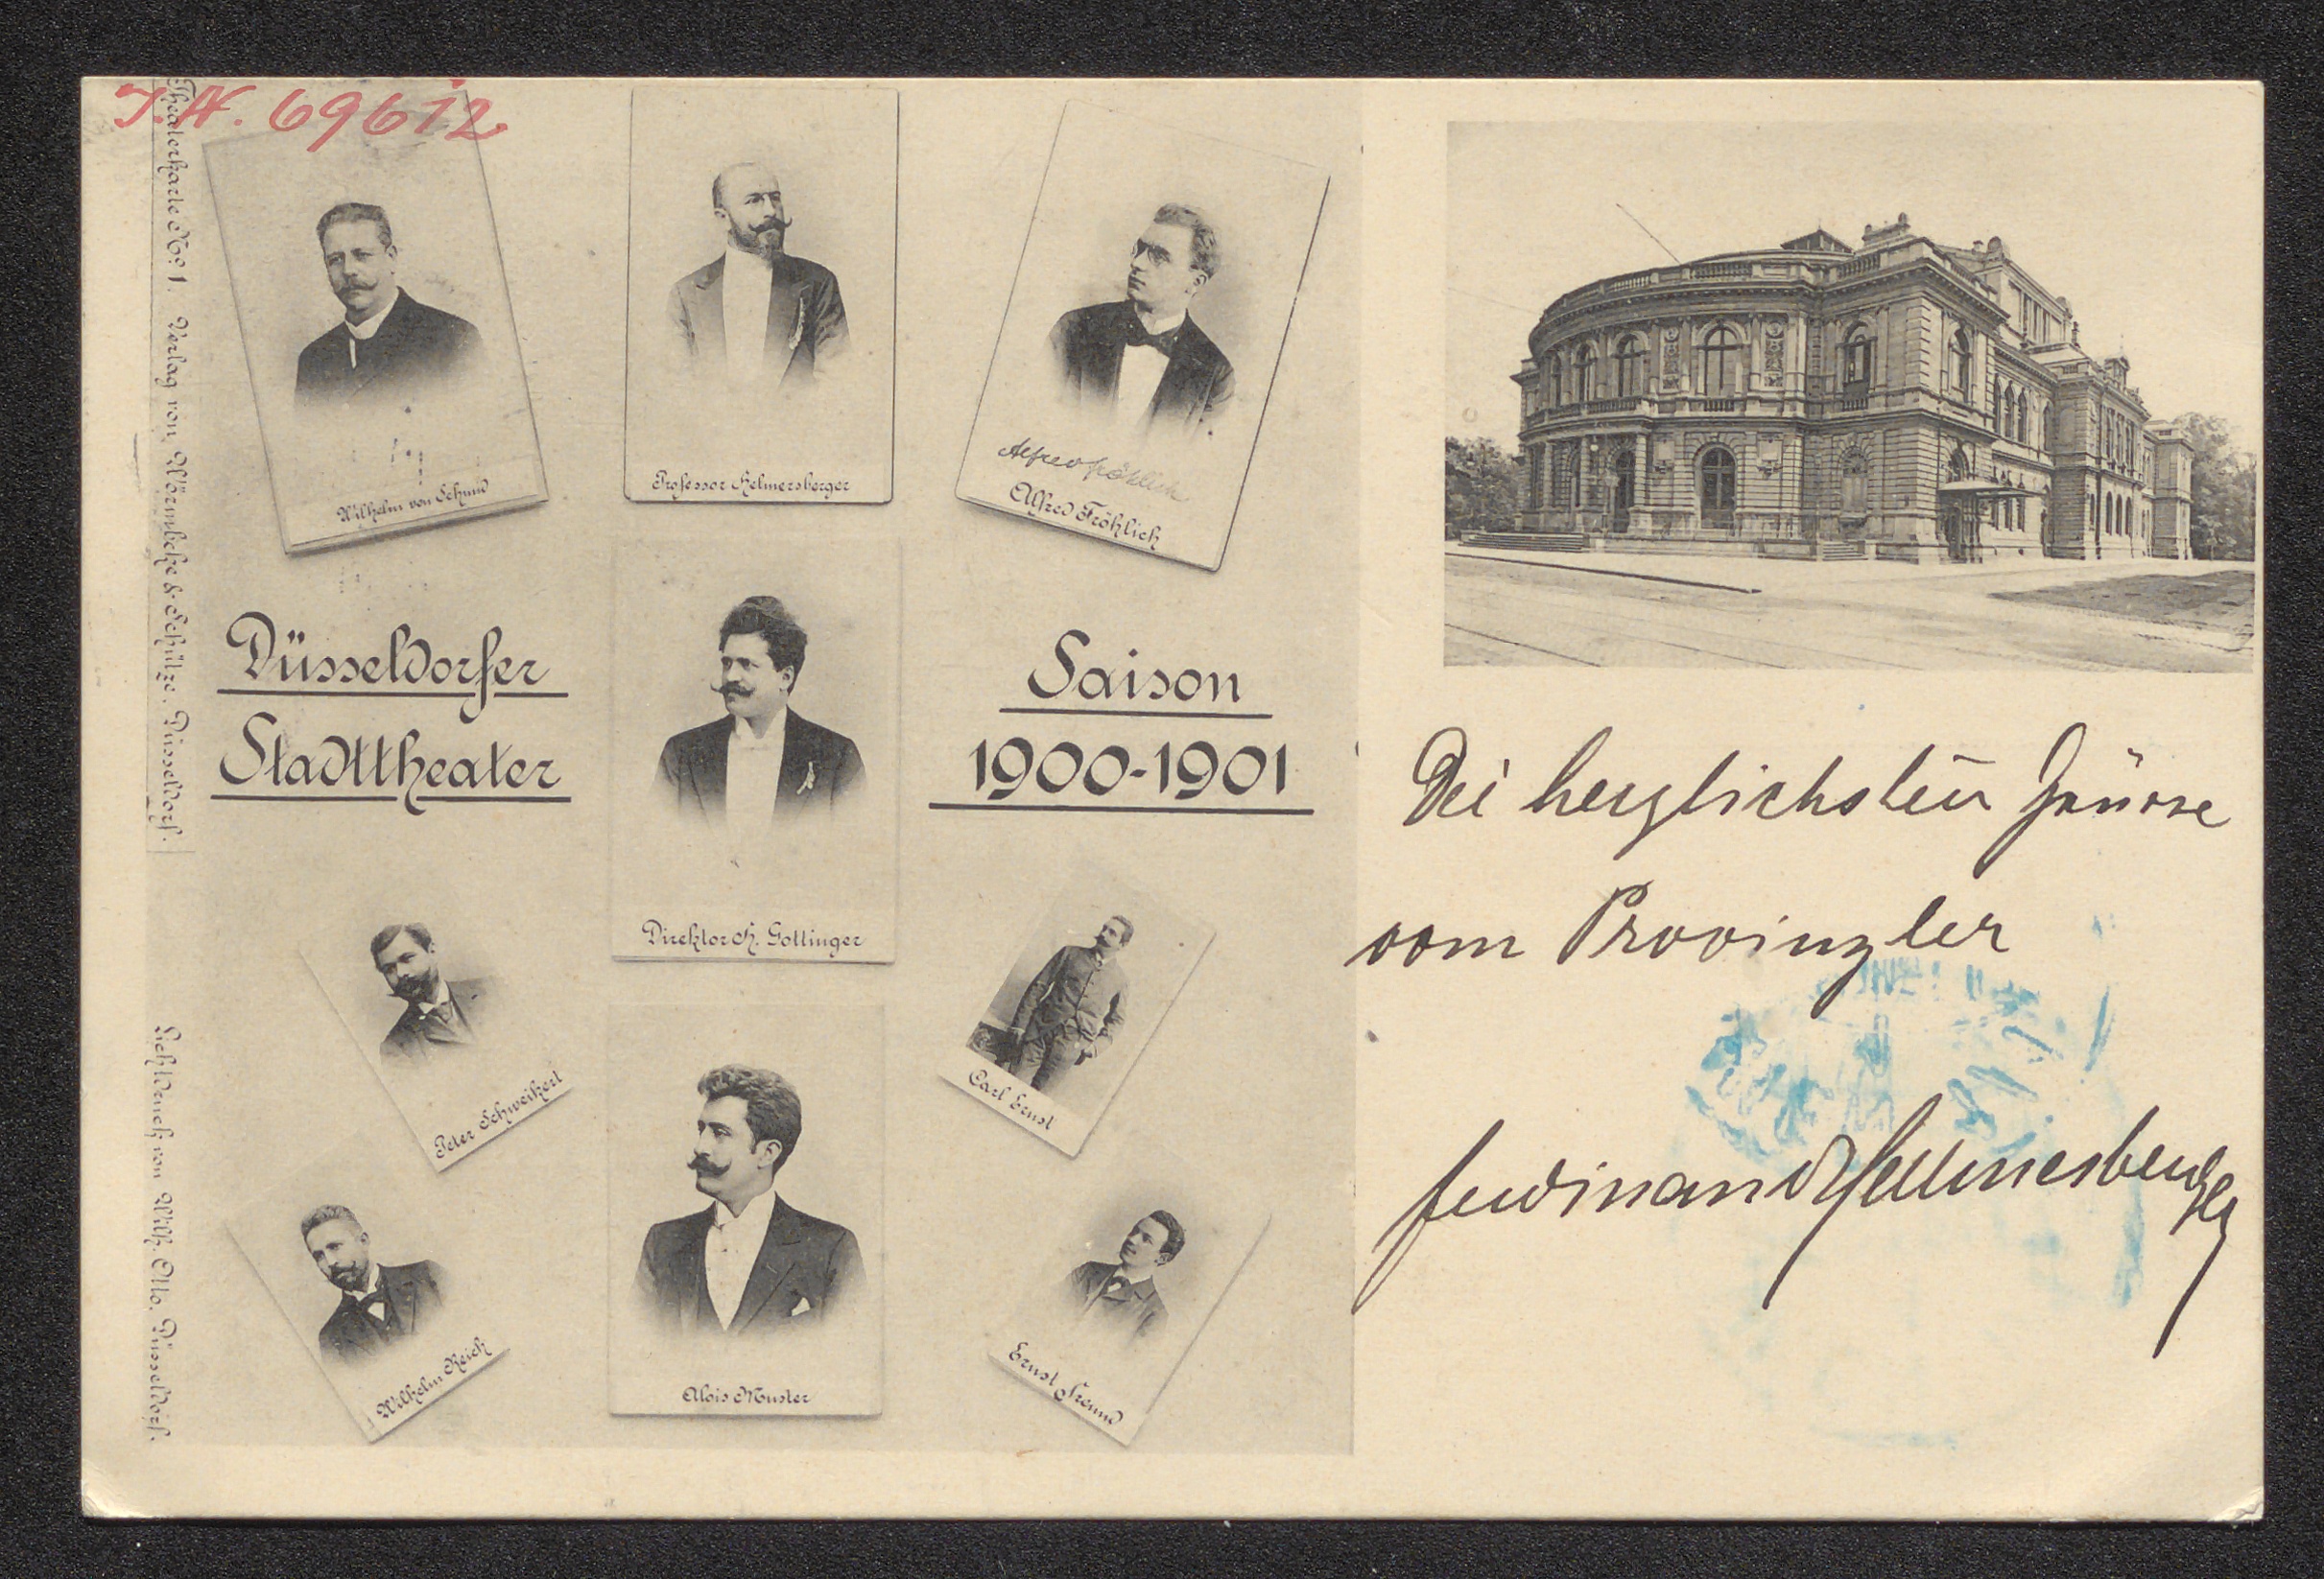 I.N. 69612
Theaterkarte No. 1. Verlag von Wörmbcke & Schütze. Düsseldorf.
Lichtdruck von Wilh. Otto. Düsseldorf.
Wilhelm von Schmid
Professor Helmersberger
Alfred Fröhlich
Alfred Fröhlich
Düsseldorfer
Stadttheater
Saison
1900-1901
Direktor H. Gottinger
Peter Schweikert
Carl Ernst
Wilhelm Reich
Alois Muster
Ernst Freund
Die herzlichsten Grüsse
vom Provinzler
Ferdinand Hellmesberger